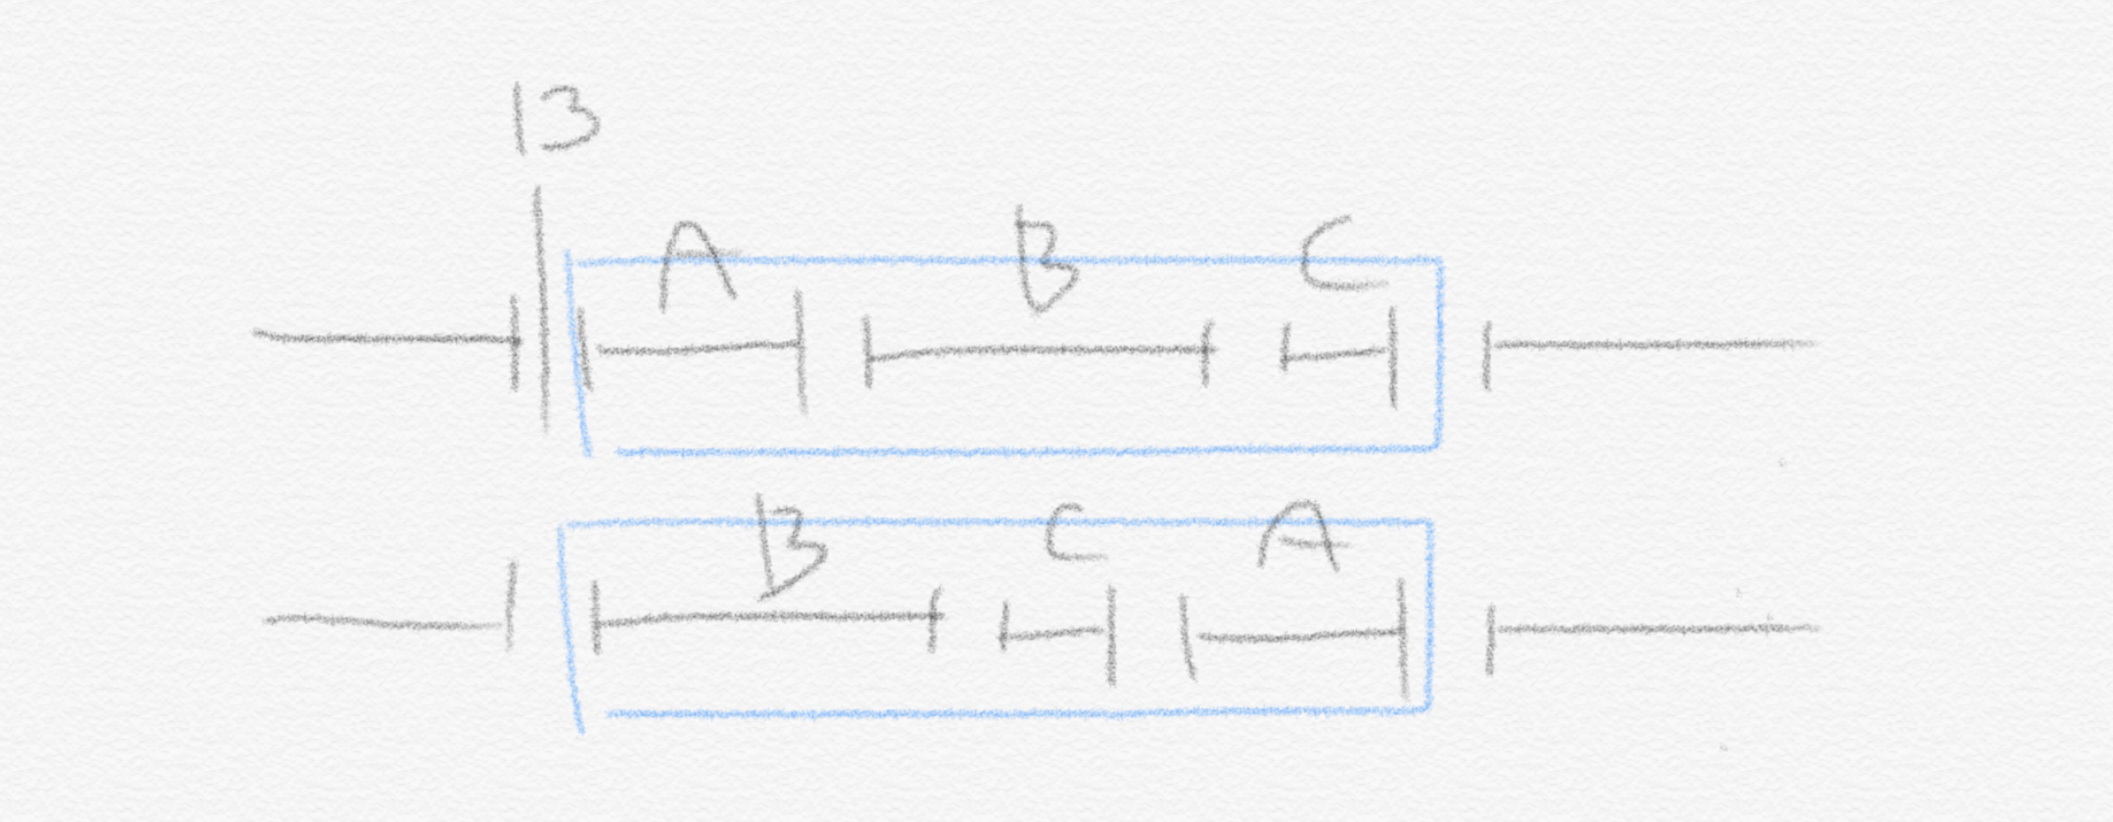 13
A B C
B C A